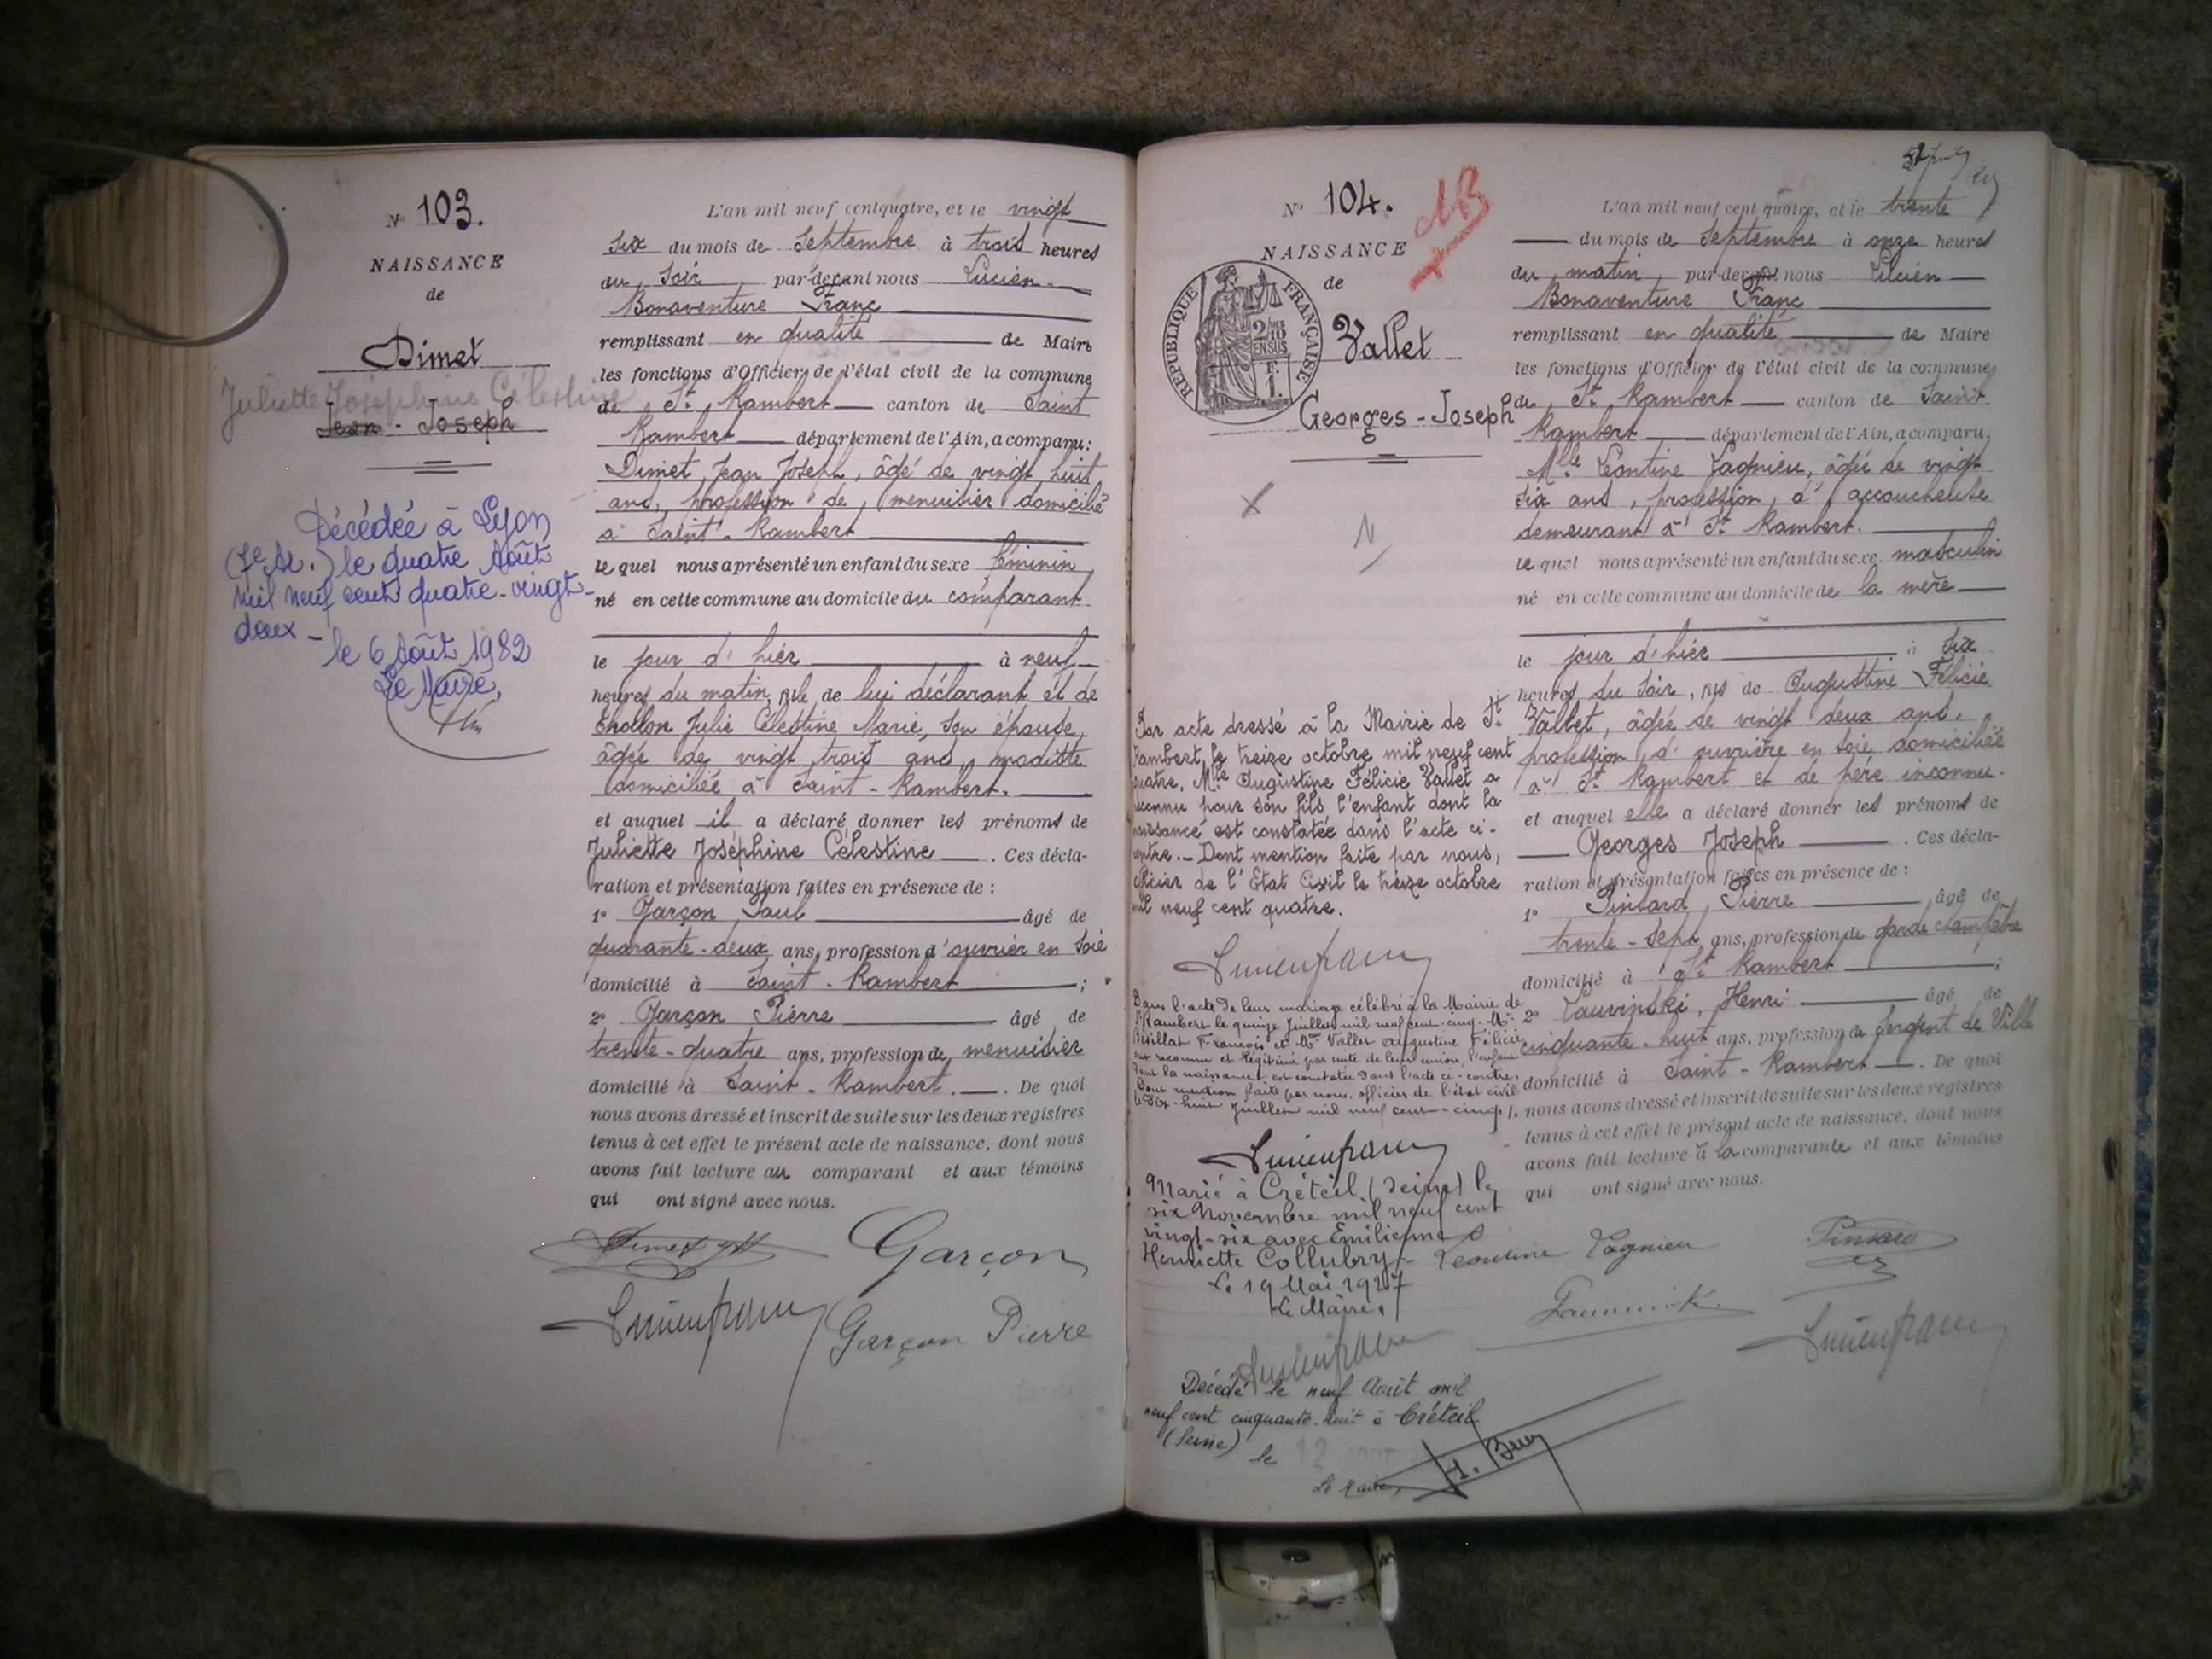 N° 103.
NAISSANCE
de
Dimet
Juliette Joséphine Célestine
Jean - Joseph
Décédée à Lyon
(7e Ar.) le quatre Août
mil neuf cent quatre-vingt-
deux -
le 6 Août 1982
Le Maire,
L'an mil neuf cent quatre, et le vingt
six du mois de Septembre à trois heures
du soir, par-devant nous Lucien
Bonaventure Franc
remplissant en qualité de Maire
les fonctions d'Officier de l'état civil de la commune
de St Rambert canton de Saint
Rambert département de l'Ain, a comparu :
Dimet Jean Joseph, âgé de vingt huit
ans, profession de menuisier domicilié
à Saint-Rambert
lequel nous a présenté un enfant du sexe féminin
né en cette commune au domicile du comparant
le jour d'hier à neuf
heures du matin, fille de lui déclarant et de
Chollon Julie Célestine Marie, son épouse,
âgée de vingt trois ans, modiste
domiciliée à Saint-Rambert.
et auquel il a déclaré donner les prénoms de
Juliette Joséphine Célestine. Ces décla-
ration et présentation faites en présence de :
1° Garçon Paul âgé de
quarante-deux ans, profession d'ouvrier en soie
domicilié à Saint-Rambert ;
2° Garçon Pierre âgé de
trente-quatre ans, profession de menuisier
domicilié à Saint-Rambert. De quoi
nous avons dressé et inscrit de suite sur les deux registres
tenus à cet effet le présent acte de naissance, dont nous
avons fait lecture au comparant et aux témoins
qui ont signé avec nous.
Garçon
Garçon Pierre
N° 104.
NAISSANCE
de
RÉPUBLIQUE FRANÇAISE
2/10 EN SUS
1 F.
Vallet
Georges-Joseph
Par acte dressé à la Mairie de St
Rambert, le treize octobre mil neuf cent
quatre, Mlle Augustine Félicie Vallet a
reconnu pour son fils l'enfant dont la
naissance est constatée dans l'acte ci-
contre. - Dont mention faite par nous,
officier de l'Etat Civil le treize octobre
mil neuf cent quatre.
Dans l'acte de leur mariage célébré à la Mairie de
St Rambert le quinze Juillet mil neuf cent cinq, Mr
François et Mme Vallet Augustine Félicie
ont reconnu et légitimé par suite de leur union l'enfant
dont la naissance est constatée dans l'acte ci-contre.
Dont mention faite par nous, officier de l'état civil
le dix-huit Juillet mil neuf cent-cinq.
Marié à Créteil (Seine) le
six Novembre mil neuf cent
vingt-six avec Emilienne
Henriette Collubry.
Le 19 Mai 1927
Le Maire,
Décédé le neuf Août mil
neuf cent cinquante-huit à Créteil
(Seine) le 12 AOUT
Le Maire,
L'an mil neuf cent quatre, et le trente
du mois de Septembre à onze heures
du matin, par-devant nous Lucien
Bonaventure Franc
remplissant en qualité de Maire
les fonctions d'Officier de l'état civil de la commune
de St Rambert canton de Saint
Rambert département de l'Ain, a comparu,
Mlle Léontine Vagnieu, âgée de vingt
six ans, profession d'accoucheuse
demeurant à St Rambert.
lequel nous a présenté un enfant du sexe masculin
né en cette commune au domicile de la mère
le jour d'hier à six
heures du soir, fils de Augustine Félicie
Vallet, âgée de vingt deux ans,
profession d'ouvrière en soie domiciliée
à St Rambert et de père inconnu.
et auquel elle a déclaré donner les prénoms de
Georges Joseph. Ces décla-
ration et présentation faites en présence de :
1° Pinsard, Pierre âgé de
trente-sept ans, profession de garde champêtre
domicilié à St Rambert ;
2° Henri âgé de
cinquante-huit ans, profession de sergent de Ville
domicilié à Saint-Rambert. De quoi
nous avons dressé et inscrit de suite sur les deux registres
tenus à cet effet le présent acte de naissance, dont nous
avons fait lecture à la comparante et aux témoins
qui ont signé avec nous.
Léontine Vagnieu
Pinsard